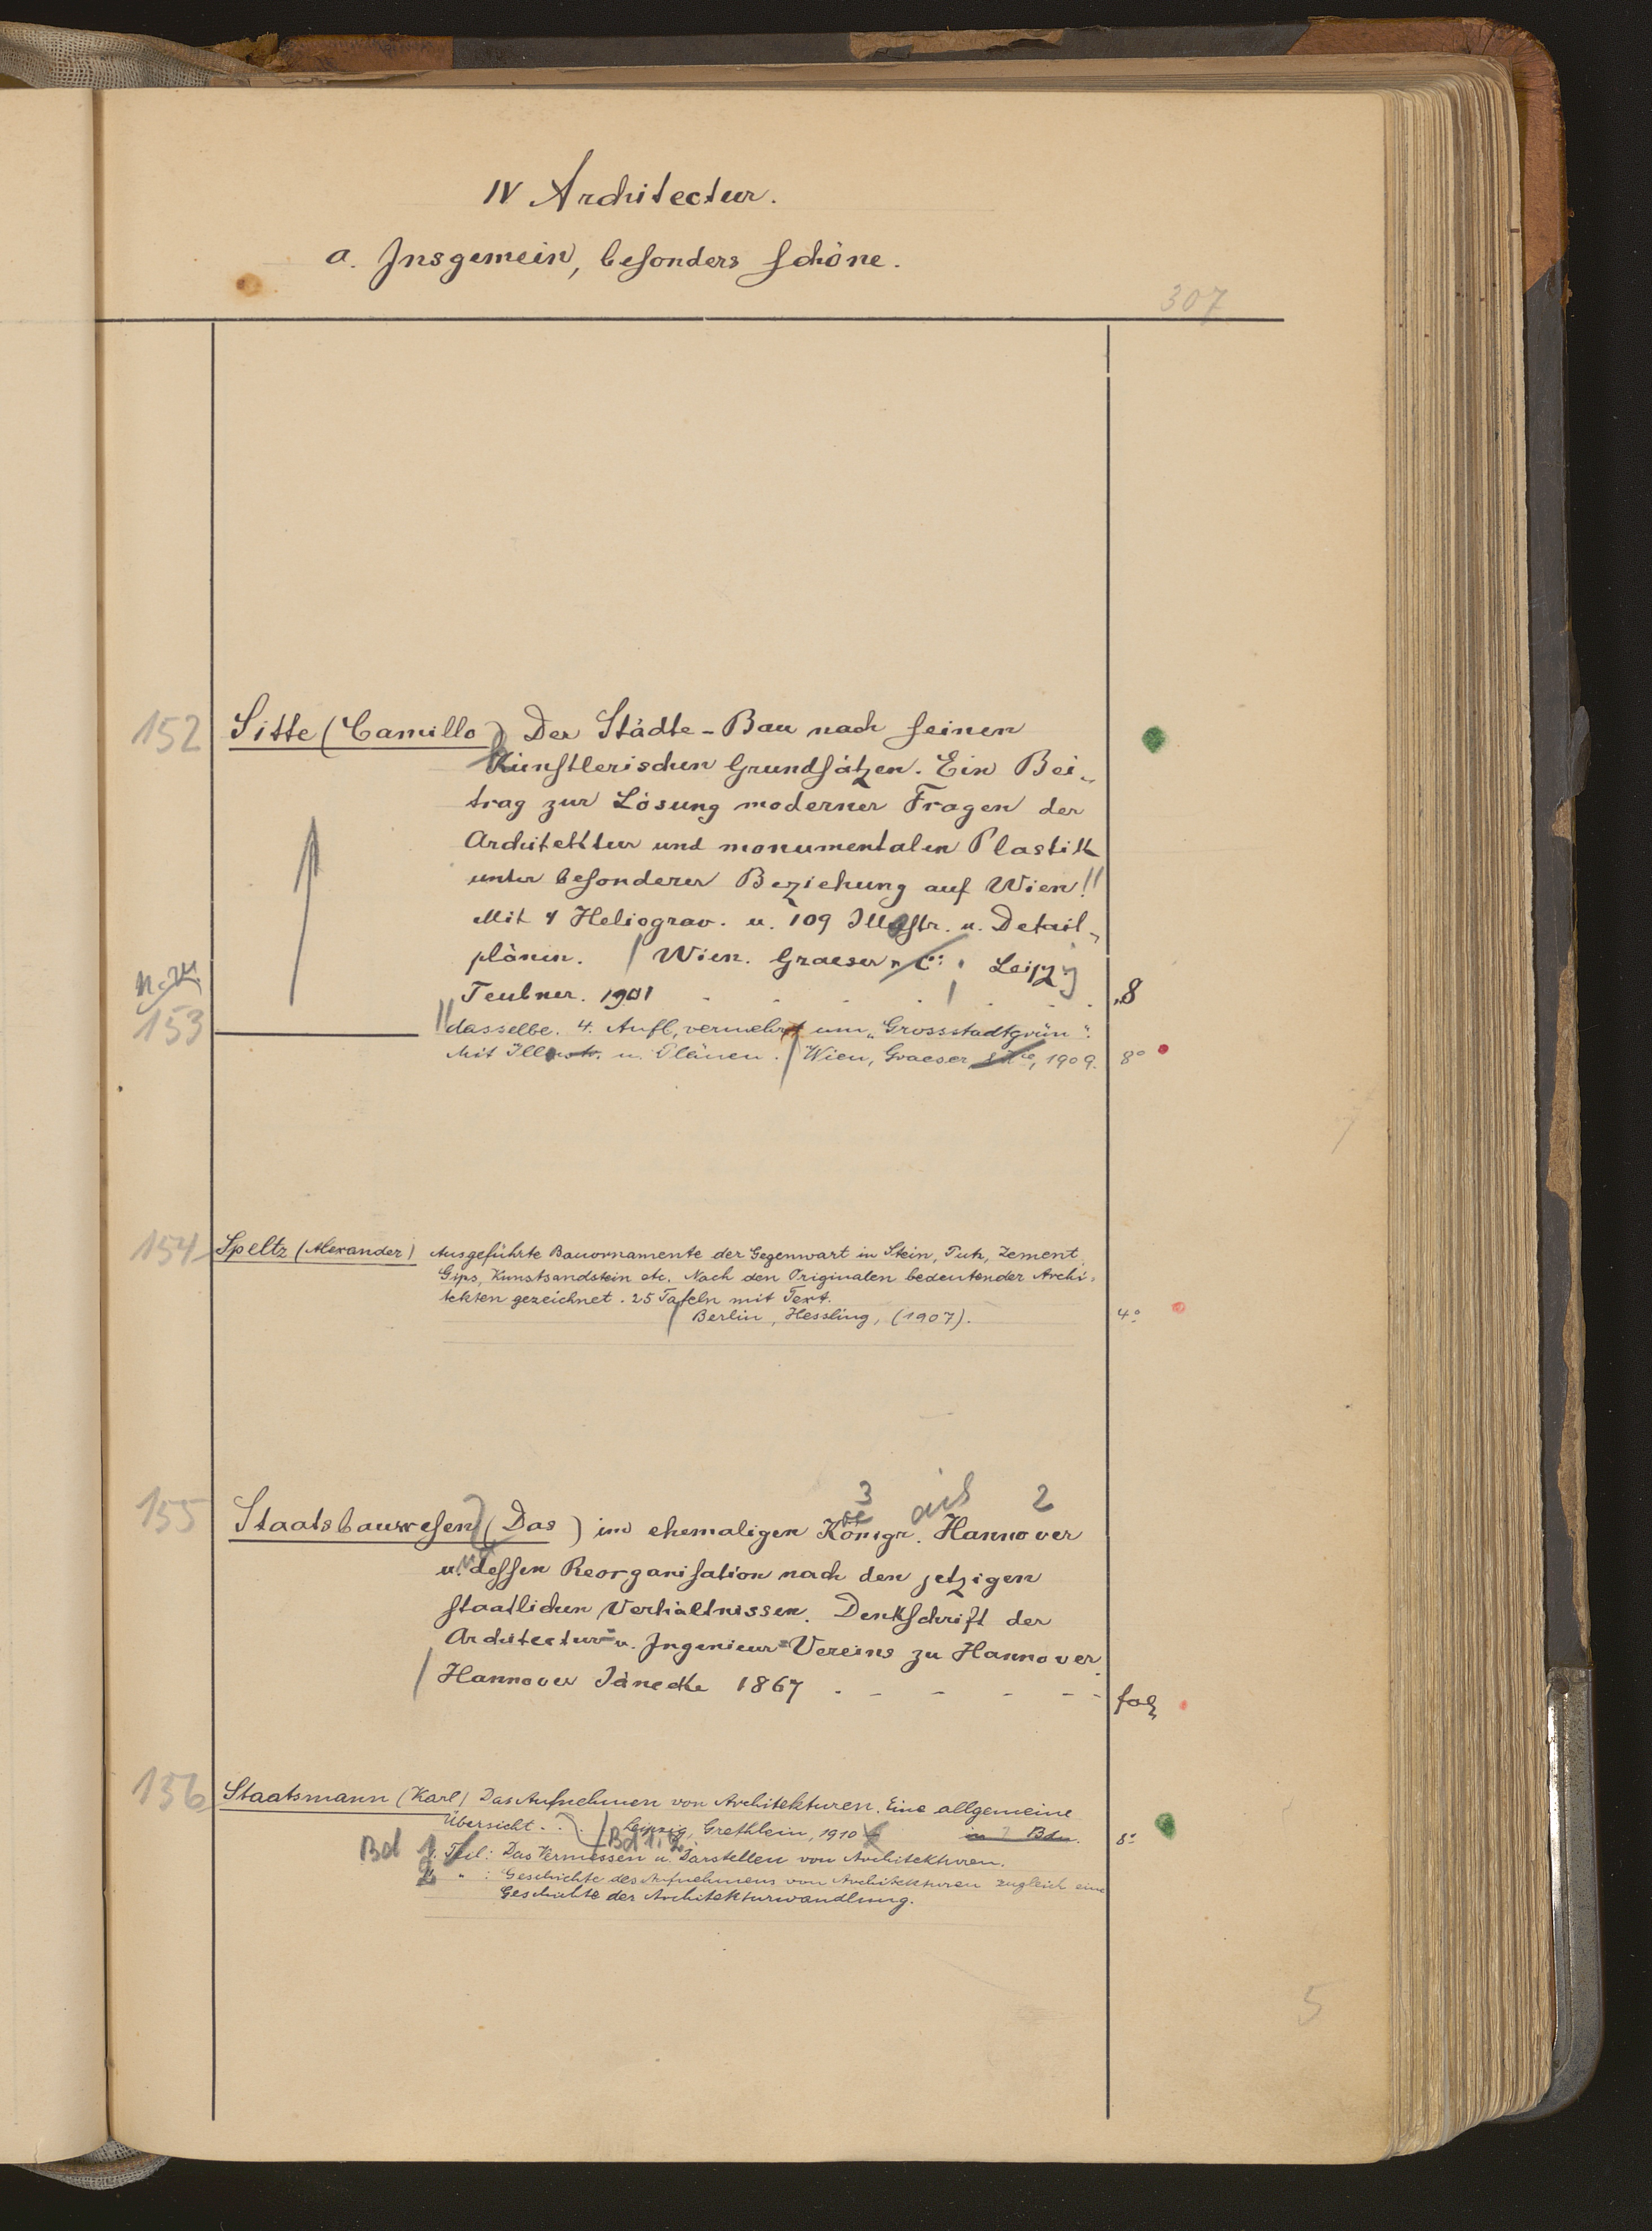 IV Architectur.
a. Insgemein, besonders schöne.
307
152 Sitte (Camillo) Der Städte-Bau nach seinen
Künstlerischen Grundsätzen. Ein Bei-
trag zur Lösung moderner Fragen der
Architektur und monumentalen Plastik
unter besonderer Beziehung auf Wien!!
Mit 4 Heliograv. u. 109 Illustr. u. Detail-
plänen. Wien. Graeser u. C: Leipzig
Teubner. 1901 8
153 dasselbe. 4. Aufl., vermehrt um "Grossstadtgrün".
Mit Illustr. u. Plänen. Wien, Graeser 1909. 8°
154 Speltz (Alexander) Ausgeführte Bauornamente der Gegenwart in Stein, Putz, Zement,
Gips, Kunstsandstein etc. Nach den Originalen bedeutender Archi-
tekten gezeichnet. 25 Tafeln mit Text.
Berlin, Hessling, (1907). 4°
3 aus 2
155 Staatsbauwesen (Das) im ehemaligen Königr. Hannover
u. dessen Reorganisation nach den jetzigen
staatlichen Verhältnissen. Denkschrift der
Architectur= u. Ingenieur=Vereins zu Hannover.
Hannover Jänecke 1867 fol
156 Staatsmann (Karl) Das Aufnehmen von Architekturen. Eine allgemeine
Übersicht. Leipzig, Grethlein, 1910 in 2 Bdn. 8°
Bd 1. 2
Bd 1. Teil: Das Vermessen u. Darstellen von Architekturen.
2 " : Geschichte des Aufnehmens von Architekturen zugleich eine
Geschichte der Architekturwandlung.
5